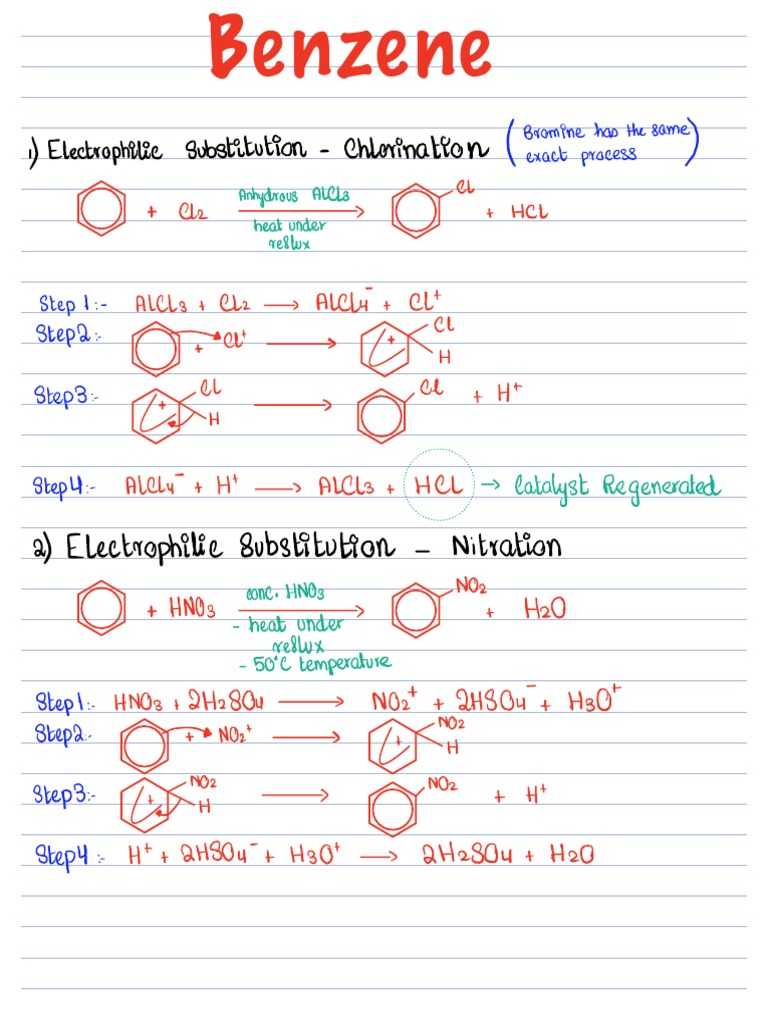 Benzene
1) Electrophilic Substitution - Chlorination (Bromine has the same exact process)
+ Cl2 Anhydrous AlCl3 heat under reflux Cl + HCl
Step 1:- AlCl3 + Cl2 → AlCl4⁻ + Cl⁺
Step2:- + Cl⁺ → + Cl H
Step3:- + Cl H → Cl + H⁺
Step4:- AlCl4⁻ + H⁺ → AlCl3 + HCl → Catalyst Regenerated
2) Electrophilic Substitution - Nitration
+ HNO3 conc. HNO3 - heat under reflux - 50°C temperature NO2 + H2O
Step1:- HNO3 + 2H2SO4 → NO2⁺ + 2HSO4⁻ + H3O⁺
Step2:- + NO2⁺ → + NO2 H
Step3:- + NO2 H → NO2 + H⁺
Step4:- H⁺ + 2HSO4⁻ + H3O⁺ → 2H2SO4 + H2O